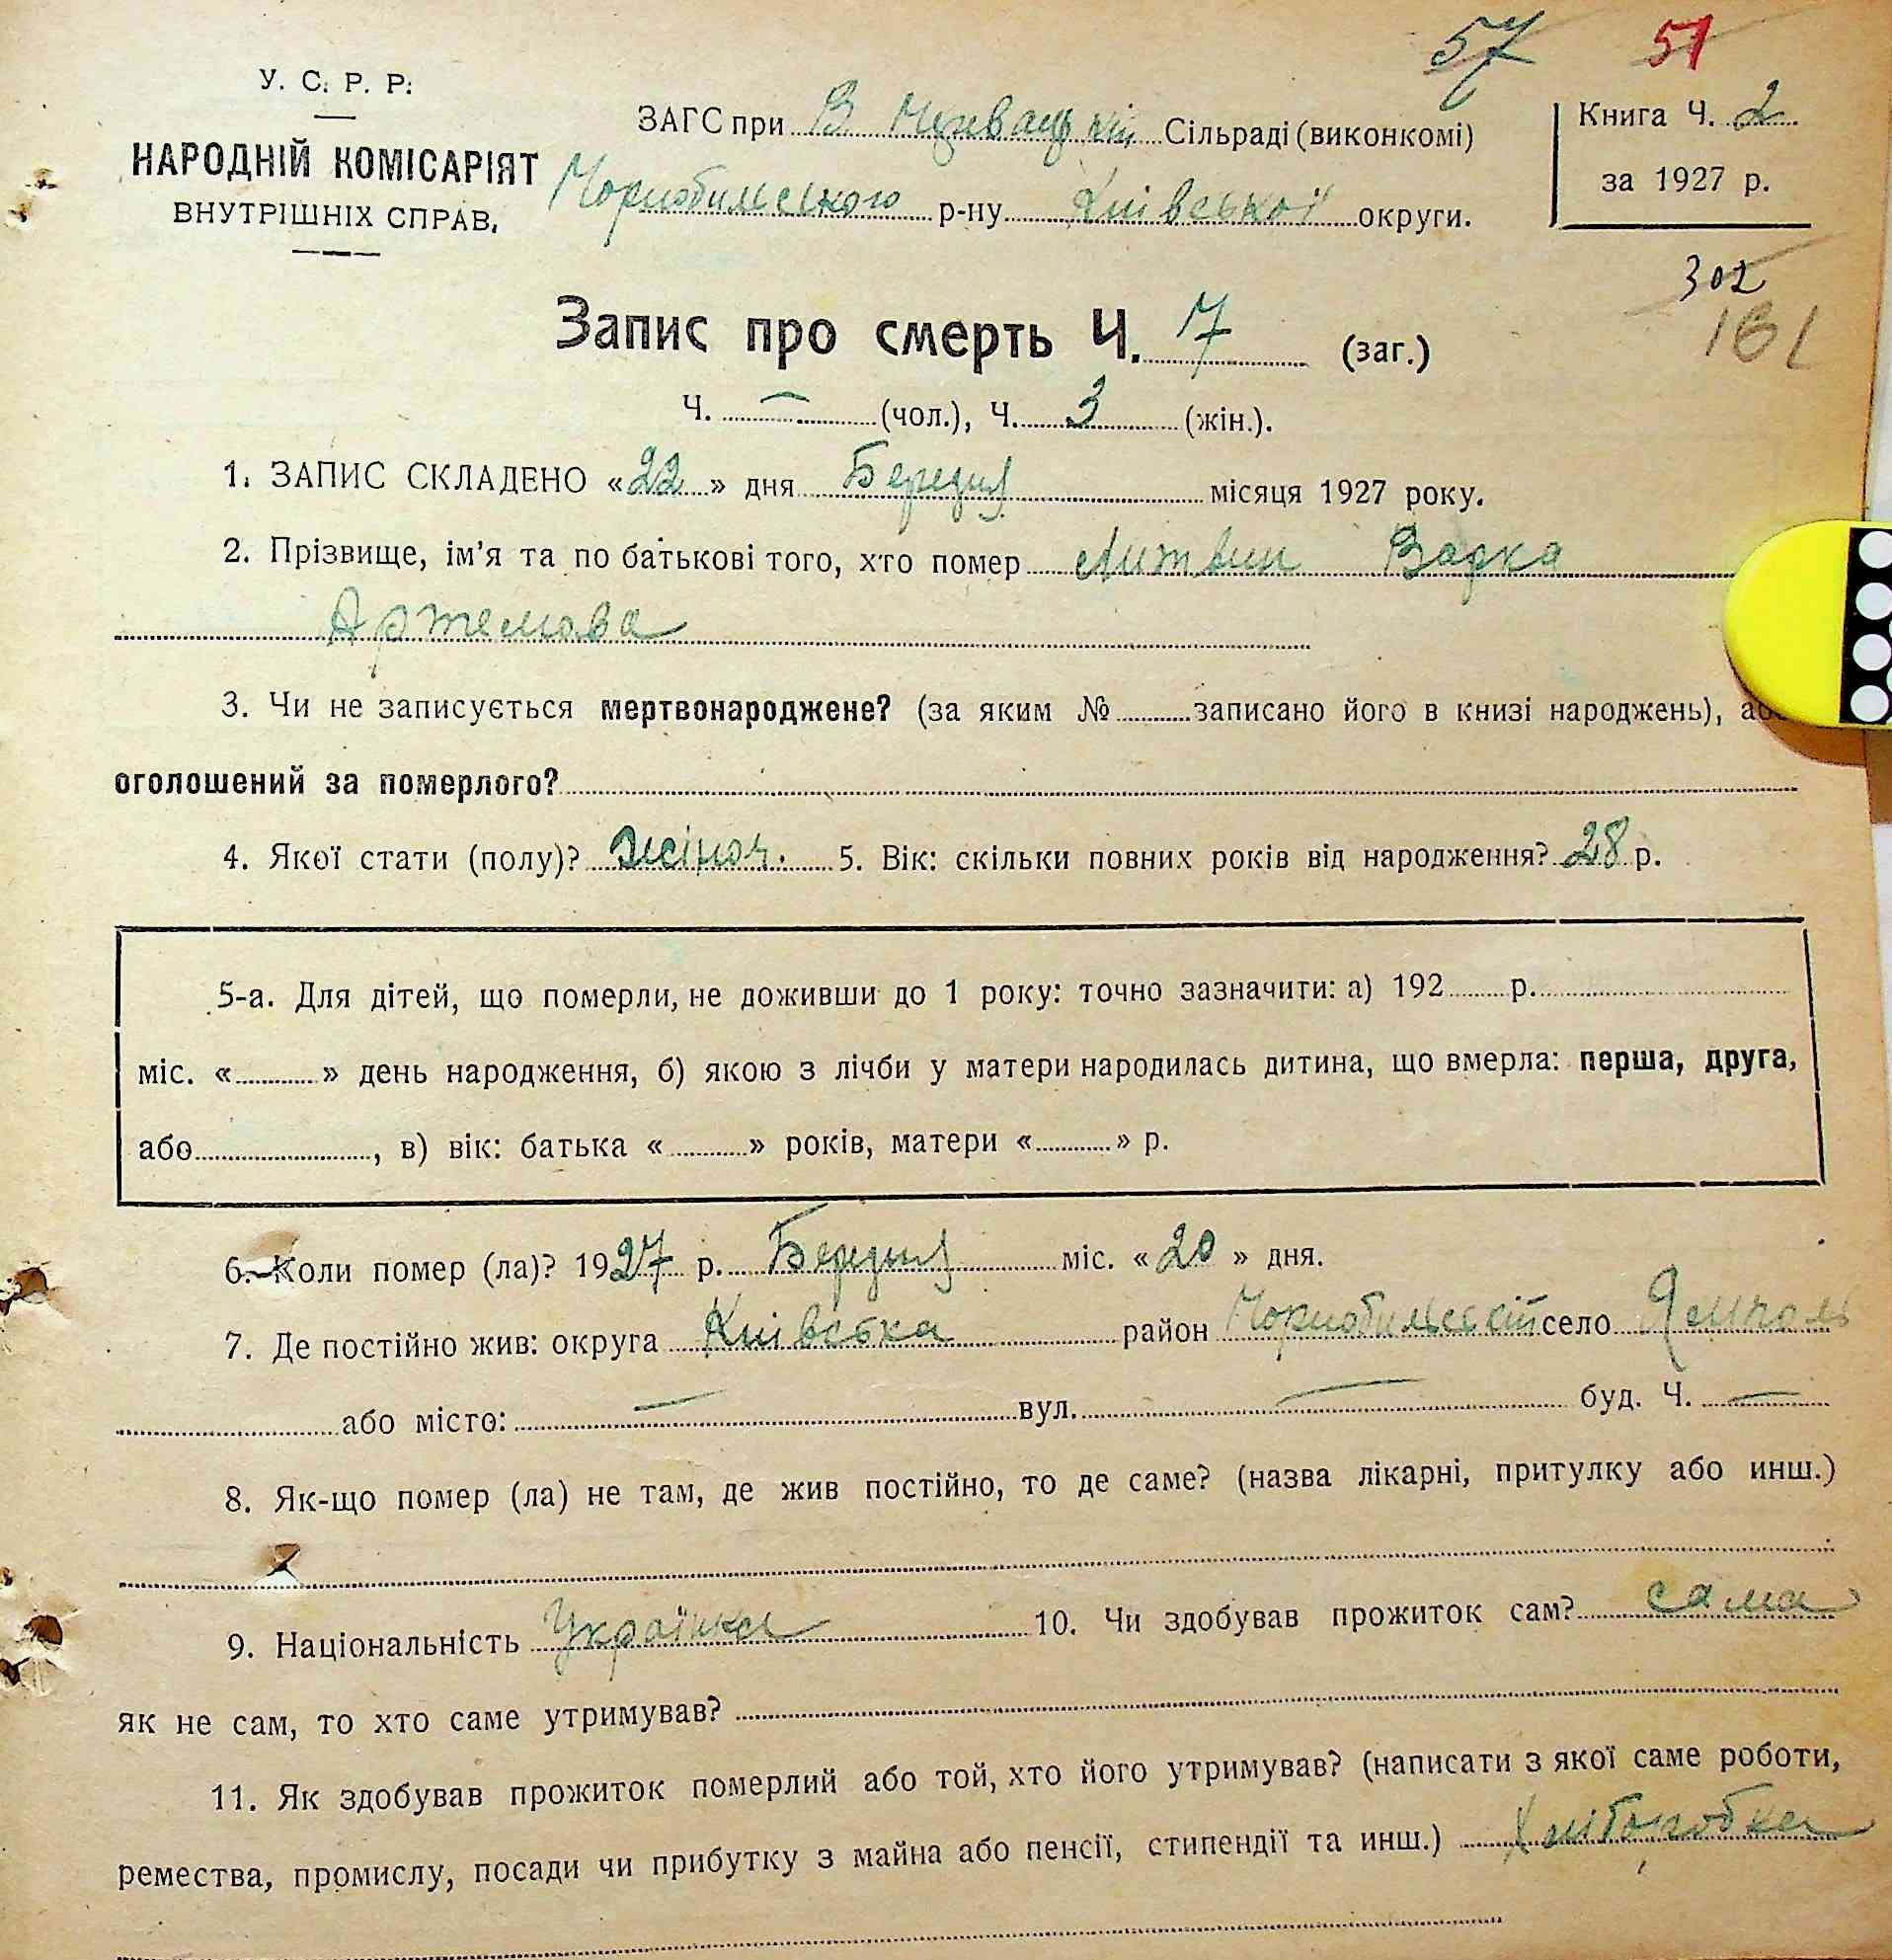 57 51
У. С. Р. Р.
НАРОДНІЙ КОМІСАРІЯТ
ВНУТРІШНІХ СПРАВ.
ЗАГС при В Сільраді (виконкомі)
Чорнобильського р-ну Київської округи.
Книга Ч. 2
за 1927 р.
302
Запис про смерть Ч. 7 (заг.)
Ч. — (чол.), Ч. 3 (жін.).
1. ЗАПИС СКЛАДЕНО «22» дня місяця 1927 року.
2. Прізвище, ім'я та по батькові того, хто помер Литвин Варка
Артемова
3. Чи не записується мертвонароджене? (за яким № записано його в книзі народжень), або
оголошений за померлого?
4. Якої стати (полу)? жіноч. 5. Вік: скільки повних років від народження? 28 р.
5-а. Для дітей, що померли, не доживши до 1 року: точно зазначити: а) 192 р.
міс. « » день народження, б) якою з лічби у матери народилась дитина, що вмерла: перша, друга,
або , в) вік: батька « » років, матери « » р.
6. Коли помер (ла)? 1927 р. міс. «20» дня.
7. Де постійно жив: округа Київська район село Ямполь
або місто: — вул. — буд. Ч. —
8. Як-що помер (ла) не там, де жив постійно, то де саме? (назва лікарні, притулку або инш.)
9. Національність Українка 10. Чи здобував прожиток сам? сама
як не сам, то хто саме утримував?
11. Як здобував прожиток померлий або той, хто його утримував? (написати з якої саме роботи,
ремества, промислу, посади чи прибутку з майна або пенсії, стипендії та инш.) Хліборобка